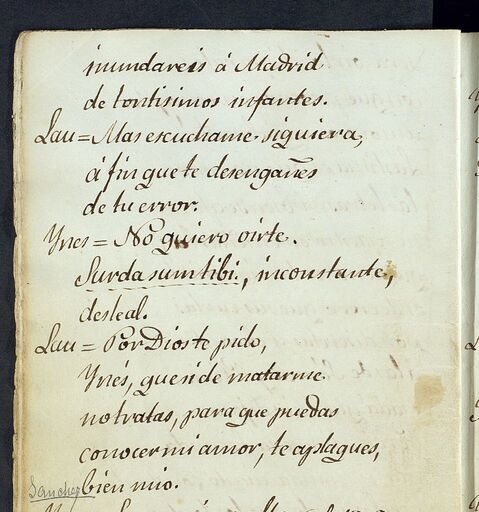 inundareis á Madrid
de tontisimos infantes.
Lau = Mas escuchame siquiera,
á fin que te desengañes
de tu error.
Ynes = No quiero oirte.
Surda sum tibi, inconstante,
desleal.
Lau = Por Dios te pido,
Ynés, que si de matarme
no tratas, para que puedas
conocer mi amor, te aplaques,
Sanchez bien mio.